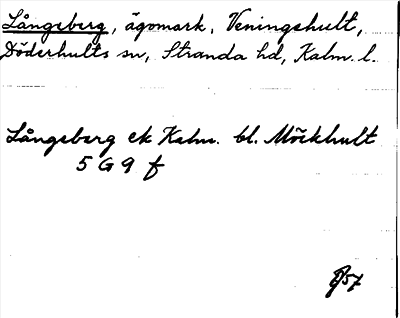 Långsberg, ägomark, Veningshult,
Döderhults sn, Stranda hd, Kalm. l.
Långsberg ek Kalm. bl. Möckhult
5 G 9 f
57